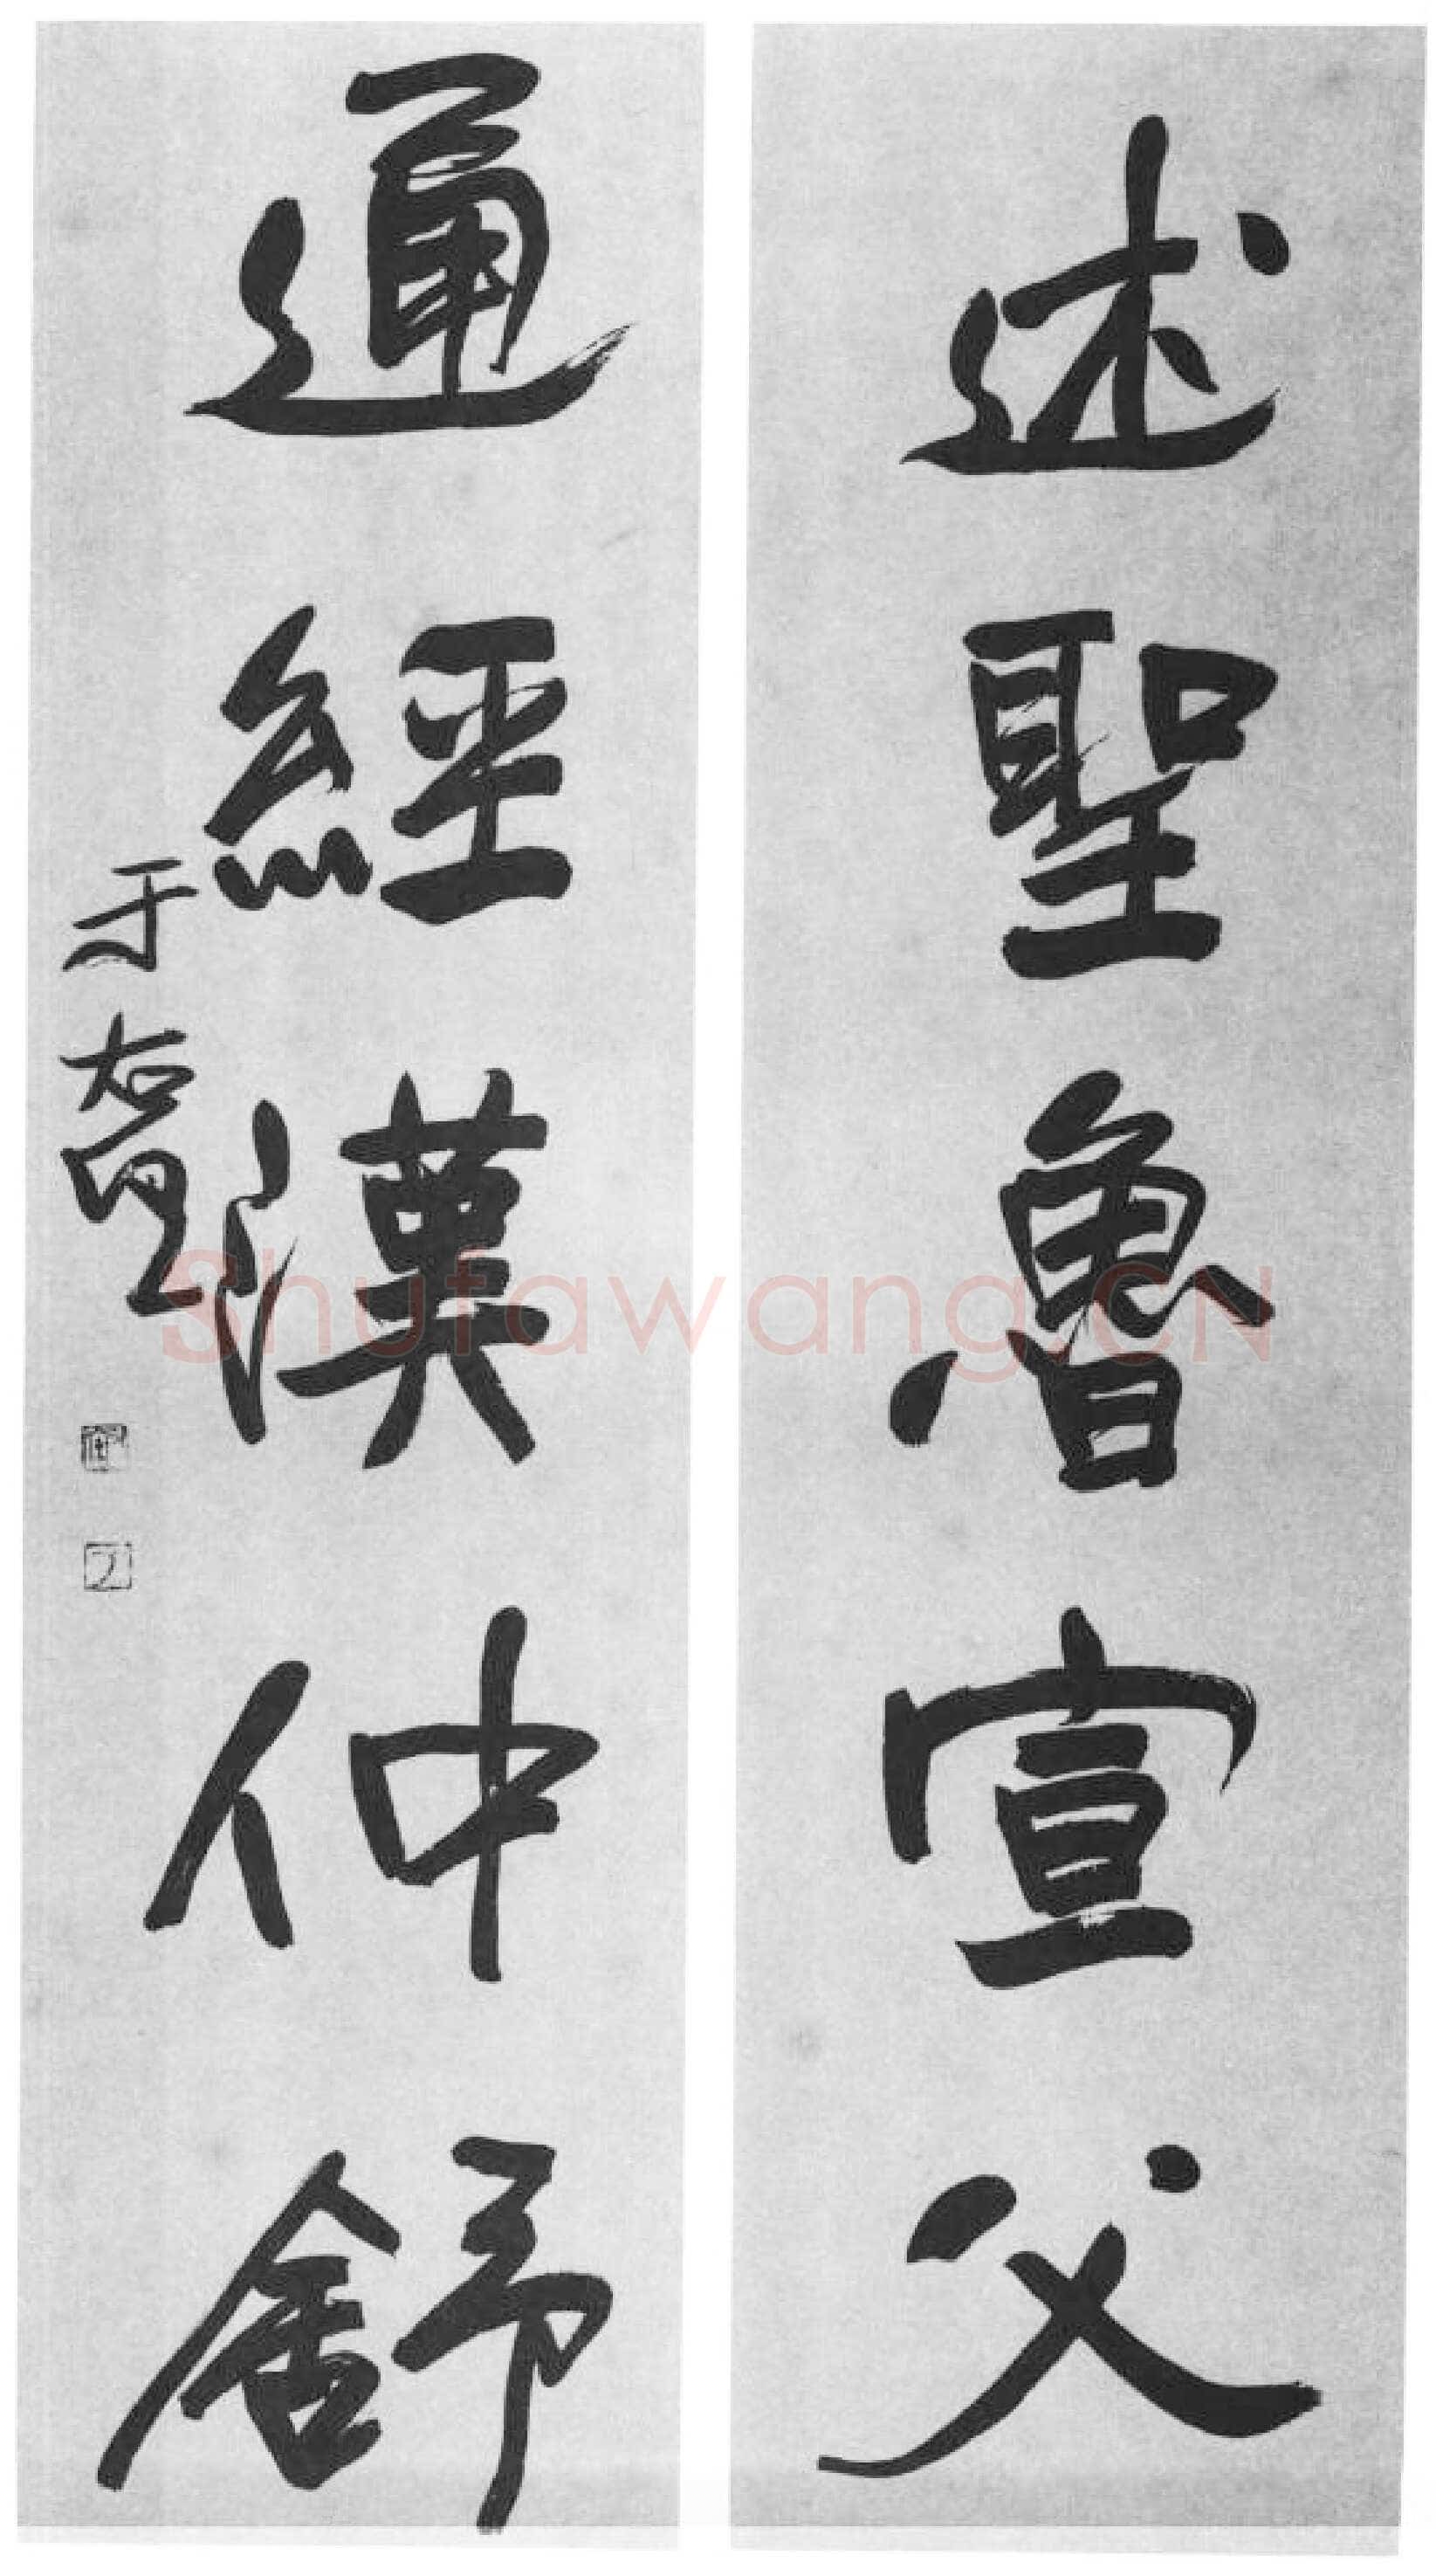 述聖魯宣父
通經漢仲舒
于右任
Shufawang.CN